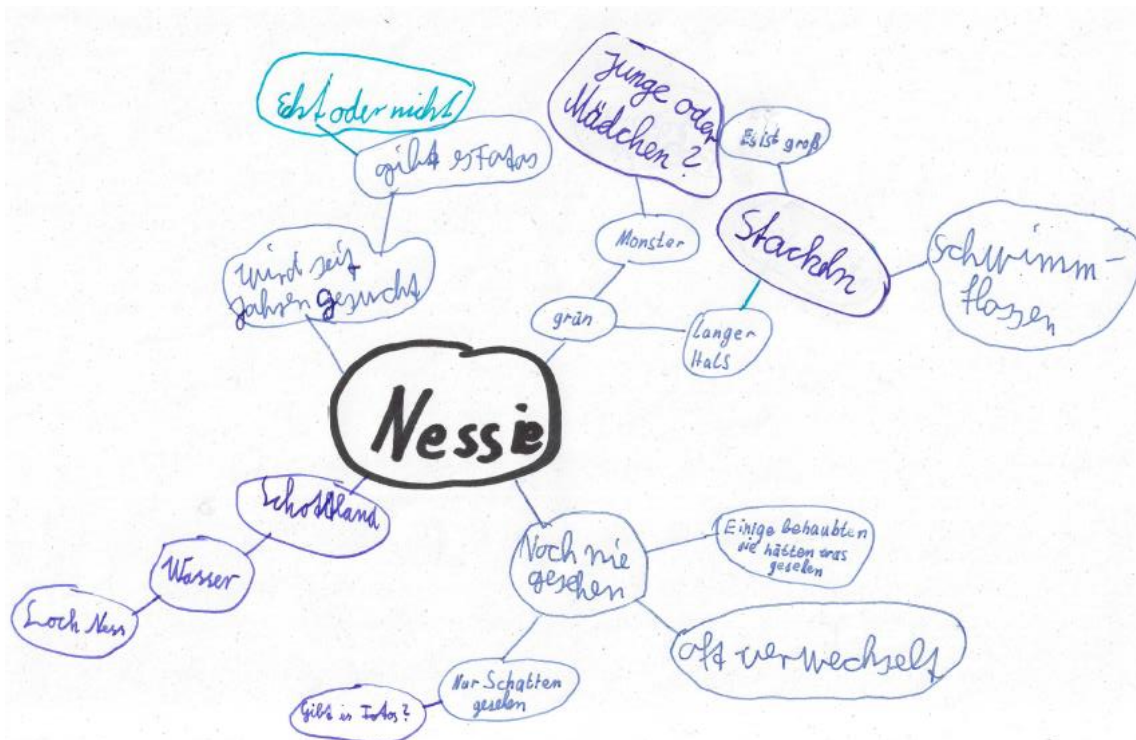 Echt oder nicht
gibt es Fotos
wird seit
Jahren gesucht
Junge oder
Mädchen?
Es ist groß
Monster
Stackeln
Schwimm-
flossen
grün
Langer
Hals
Nessie
Schottland
Wasser
Loch Ness
Noch nie
gesehen
Einige behaubten
sie hätten was
geselen
oft verwechselt
Nur Schatten
geselen
Gibt es Fotos?